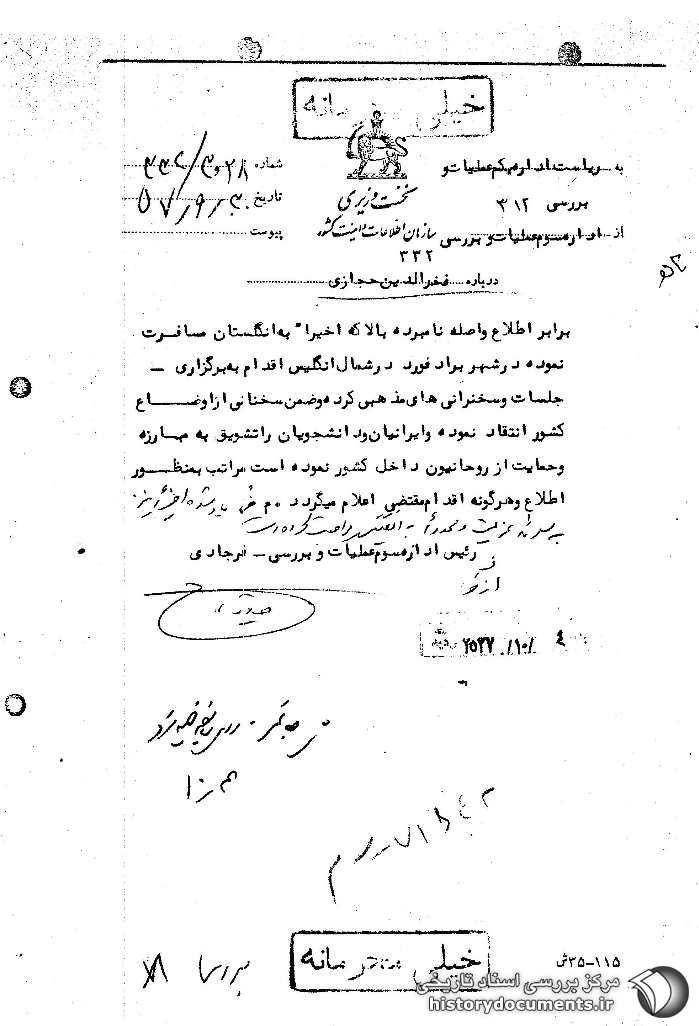 خیلی محرمانه
به ریاست اداره یکم عملیات و
بررسی ۳۱۲
از اداره سوم عملیات و بررسی
۳۳۲
نخست وزیری
سازمان اطلاعات و امنیت کشور
شماره ۳۳۲/۳۰۲۸
تاریخ ۵۷/۹/۳۰
پیوست
درباره فخرالدین حجازی
برابر اطلاع واصله نامبرده بالا که اخیراً به انگلستان مسافرت
نموده در شهر برادفورد در شمال انگلیس اقدام به برگزاری –
جلسات و سخنرانی های مذهبی کرده و ضمن سخنانی از اوضاع
کشور انتقاد نموده و ایرانیان و دانشجویان را تشویق به مبارزه
و حمایت از روحانیون داخل کشور نموده است مراتب بمنظور
اطلاع و هرگونه اقدام مقتضی اعلام میگردد
رئیس اداره سوم عملیات و بررسی – فرجادی
۲۵۳۷/۱۰/ ٤
خیلی محرمانه
۱۱۵–۳۵ش
مرکز بررسی اسناد تاریخی
historydocuments.ir